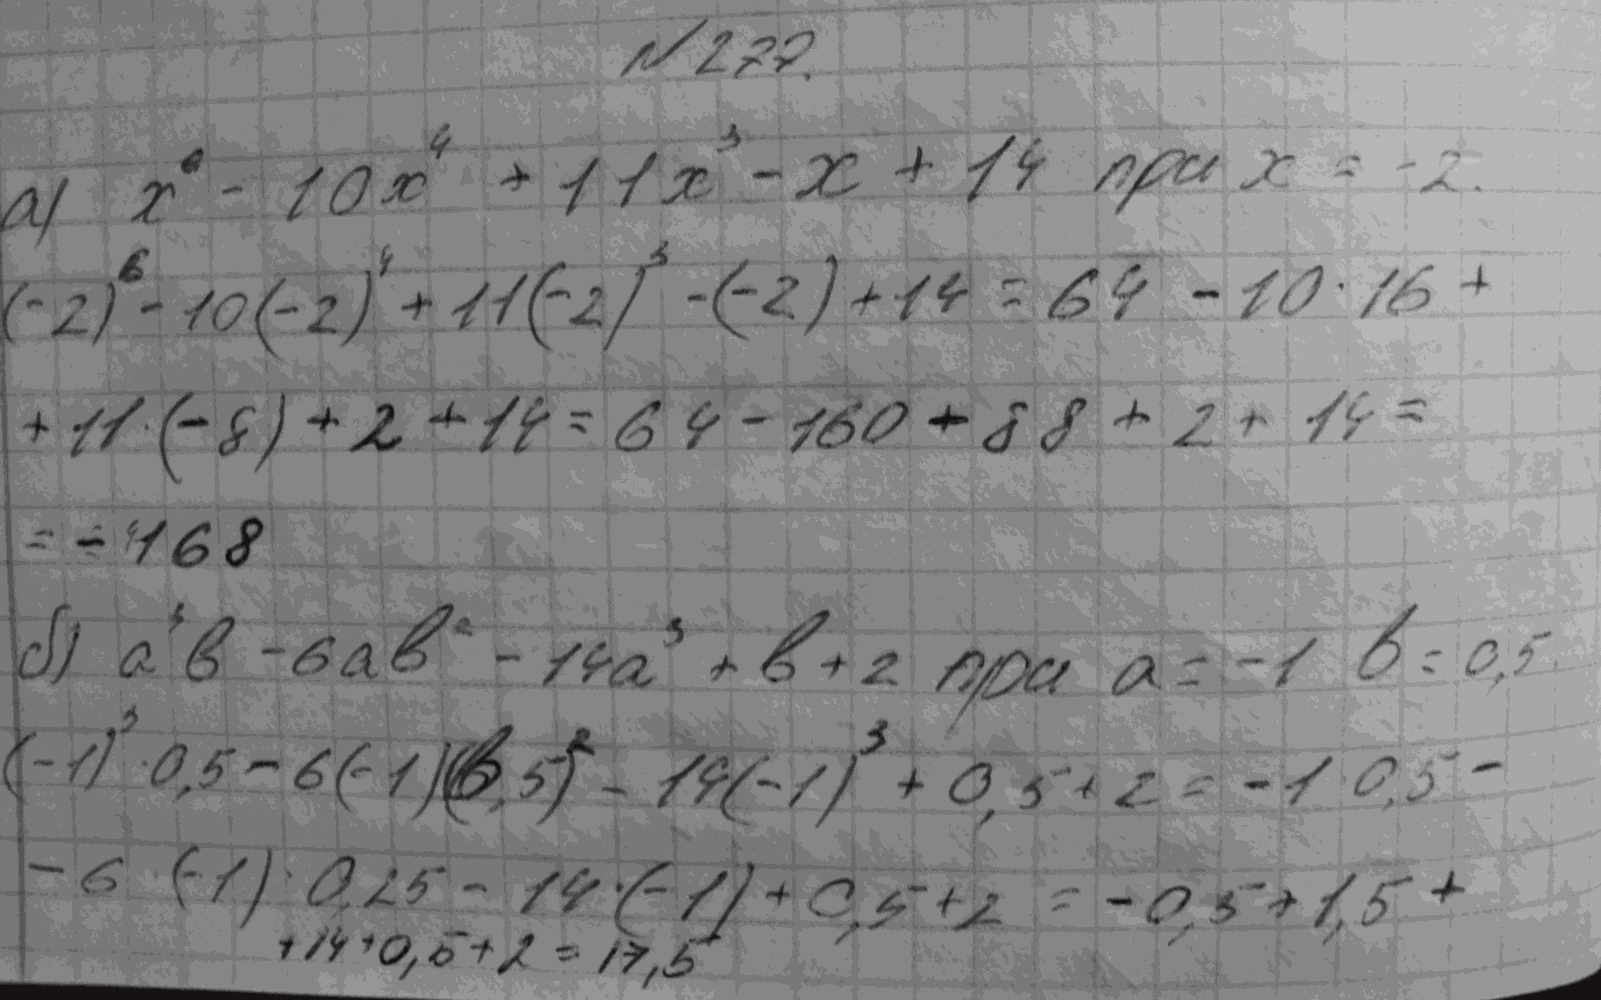 № 277.
а) x⁶ - 10x⁴ + 11x³ - x + 14 при x = -2.
(-2)⁶ - 10(-2)⁴ + 11(-2)³ - (-2) + 14 = 64 - 10·16 +
+ 11·(-8) + 2 + 14 = 64 - 160 + 88 + 2 + 14 =
= - 168
б) a³b - 6ab² - 14a³ + b + 2 при a = -1 b = 0,5.
(-1)³·0,5 - 6(-1)(0,5)² - 14(-1)³ + 0,5 + 2 = -1·0,5 -
- 6·(-1)·0,25 - 14·(-1) + 0,5 + 2 = -0,5 + 1,5 +
+14+0,5+2 = 17,5